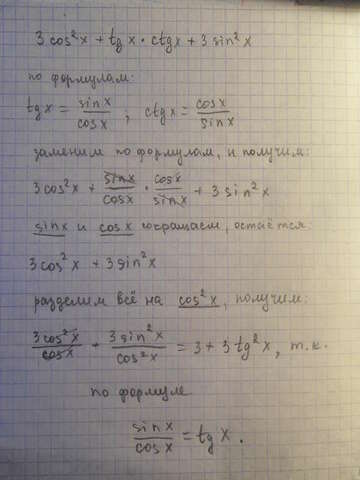 3 cos²x + tg x · ctg x + 3 sin²x
по формулам:
tg x = sin x / cos x ; ctg x = cos x / sin x
заменим по формулам, и получим:
3 cos²x + sin x / cos x · cos x / sin x + 3 sin²x
sin x и cos x сокращаем, остаётся:
3 cos²x + 3 sin²x
разделим всё на cos²x, получим:
3 cos²x / cos x + 3 sin²x / cos²x = 3 + 3 tg²x, т.к.
по формуле
sin x / cos x = tg x.